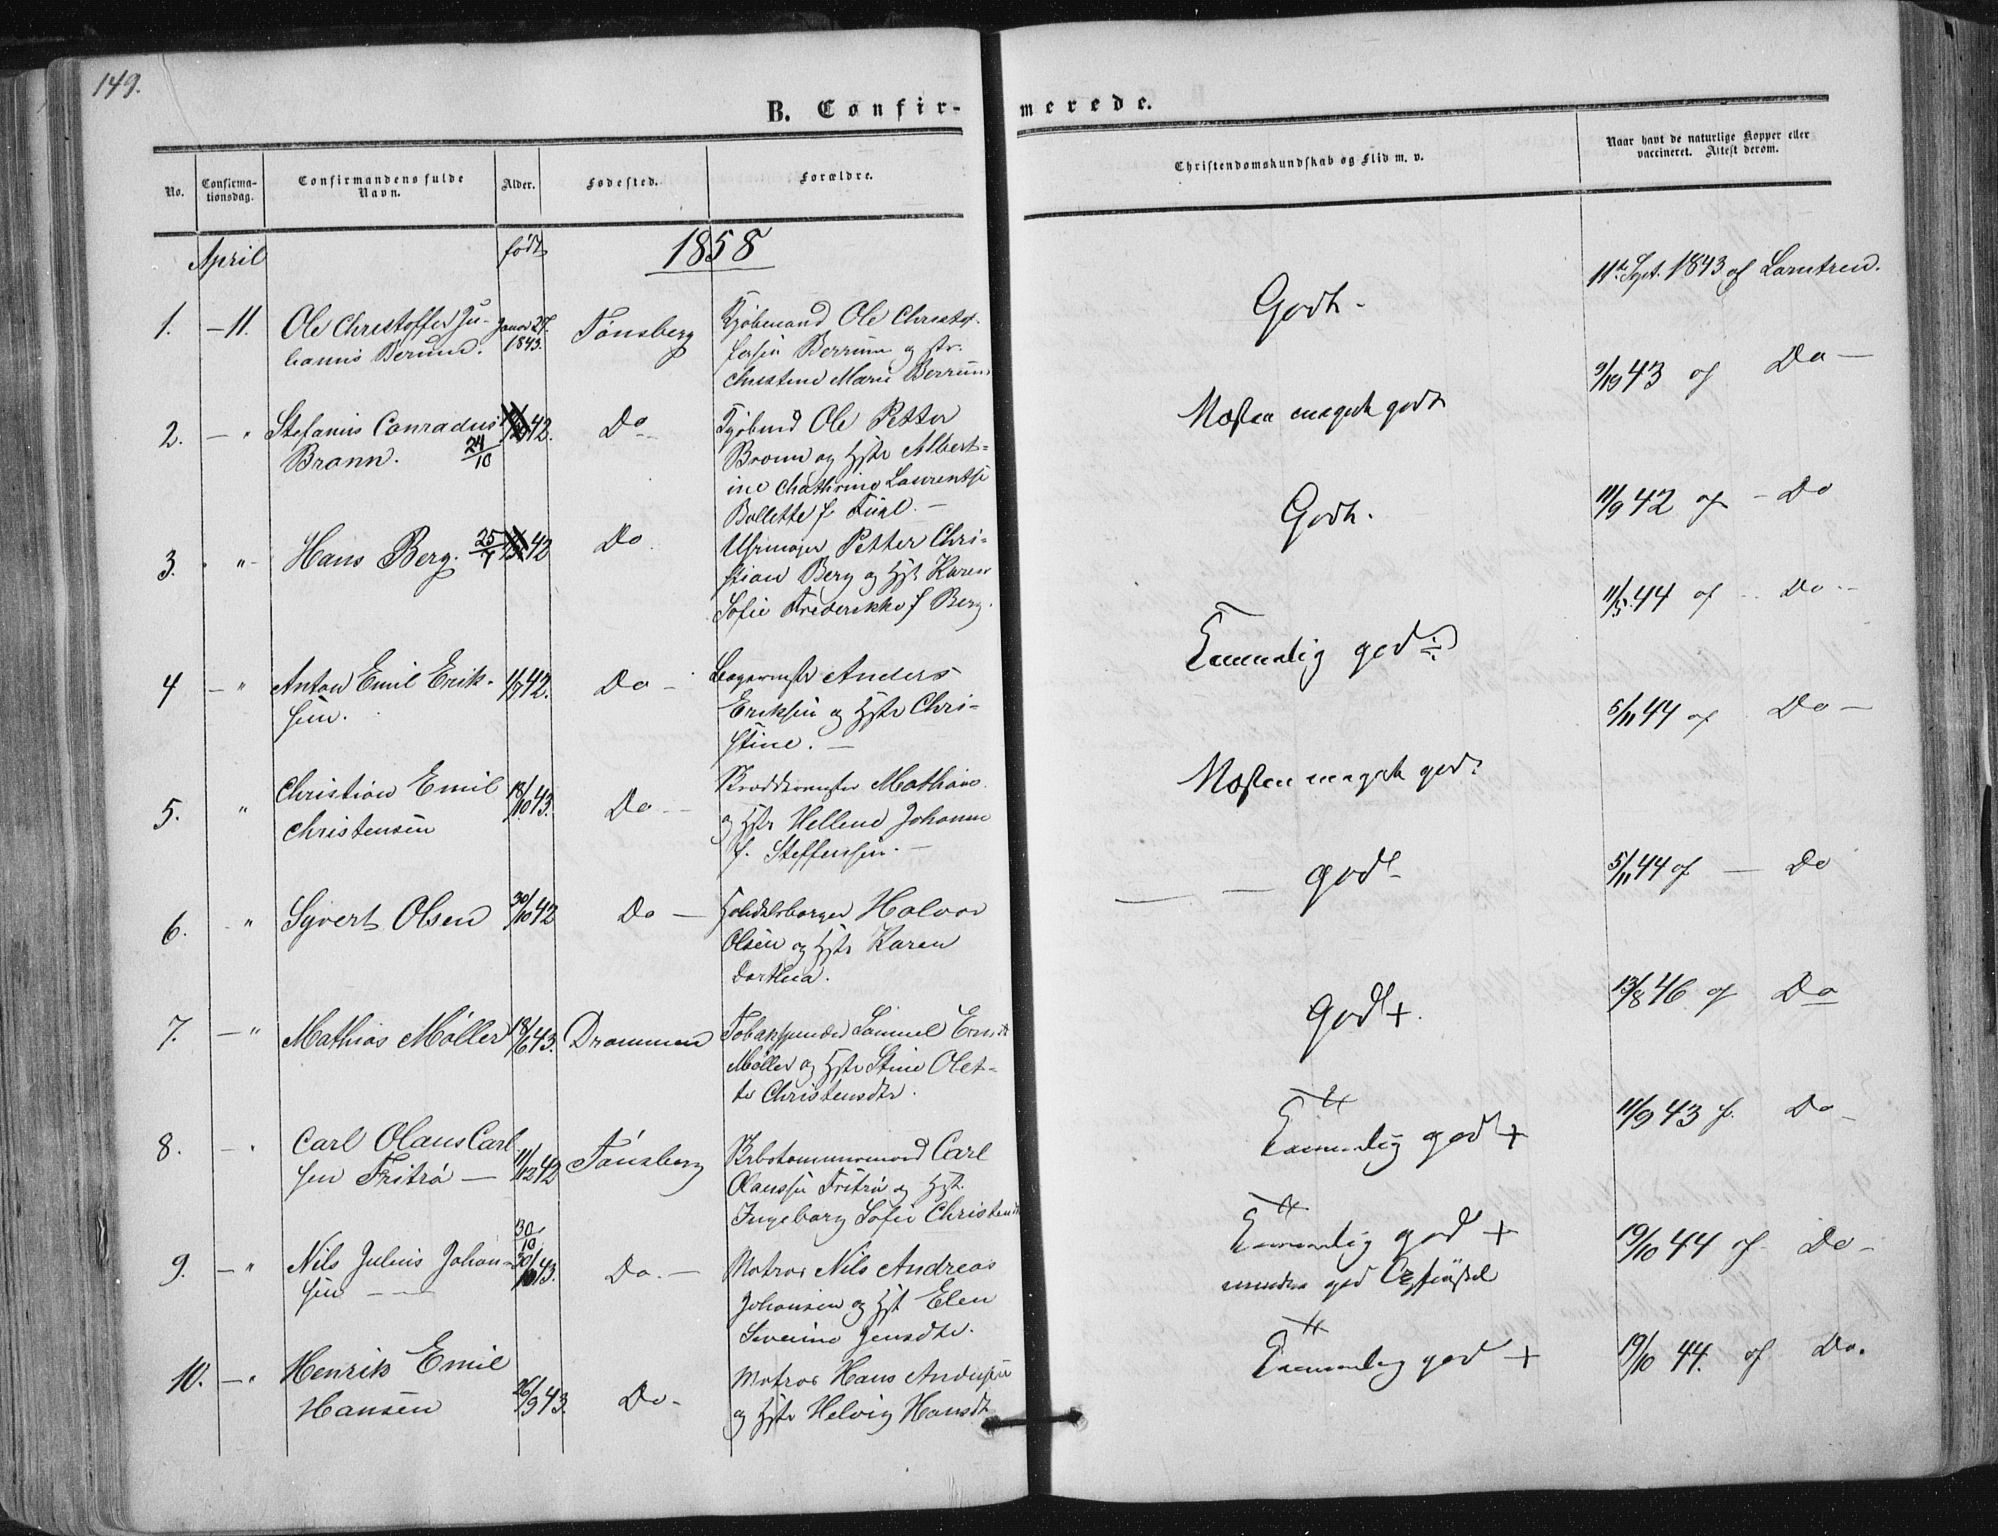 149.
B. Confir-
merede.
No.
Confirma-
tionsdag.
Confirmandens fulde
Navn.
Alder.
Fødested.
Forældre.
Christendomskundskab og Flid m. v.
Naar havt de naturlige Kopper eller
vaccineret. Attest derom.
April
født
1858
1. — 11. Ole Christoffer Ju-
1843. Tønsberg
Ole Christof-
fersen Berrum og
Christine Marie Berrum
Godt. 11te Sept. 1843 af
2. — " Stefanus Conradus
Bronn. 24/10 42. Do
Ole Petter
Bronn og Hstr Albert-
ine Chathrine Laurentse
Bollette f.
Næsten meget godt 9/19 43 af Do —
3. " Hans Berg. 25/7 42 Do
Petter Chri-
stian Berg og Hst Karen
Sofie Frederikke f Berg.
Godt. 11/9 42 af - Do
4 — " Anton Emil Erik-
sen. 1/7 42. Do —
Anders
Eriksen og Hstr Chri-
stine. —
Temmelig god 11/5 44 af Do —
5. " Christian Emil
Christensen 18/10 43. Do —
Mathias
og Hstr Hellene Johanne
f. Steffensen. —
Næsten meget god 5/11 44 af Do —
6. " Syvert Olsen 30/10 42 Do —
Halvor
Olsen og Hstr Karen
Dorthea.
god 5/11 44 af — Do
7. — " Mathias Møller 18/6 43. Drammen
Tobakspinder Samuel Ernst
Møller og Hstr Stine Olet-
te Christensdtr.
god +. 13/8 46 af Do
8. — " Carl Olaus Carl
sen Fritrø — 11/12 42 Tønsberg
Carl
Olaussen Fritrø og Hst.
Ingeborg Sofie
Temmelig god + 11/9 43 f. Do —
9. — " Nils Julius Johan-
sen 30/10 43. Do. —
Matros Nils Andreas
Johansen og Hst Elen
Severine Jensdtr.
Temmelig god +
mindre god
19/10 44 af Do —
10. — " Henrik Emil
Hansen 26/9 43. Do -
Matros Hans Andersen
og Hstr Helvig Hansdtr
Temmelig god + 19/10 44. af Do.